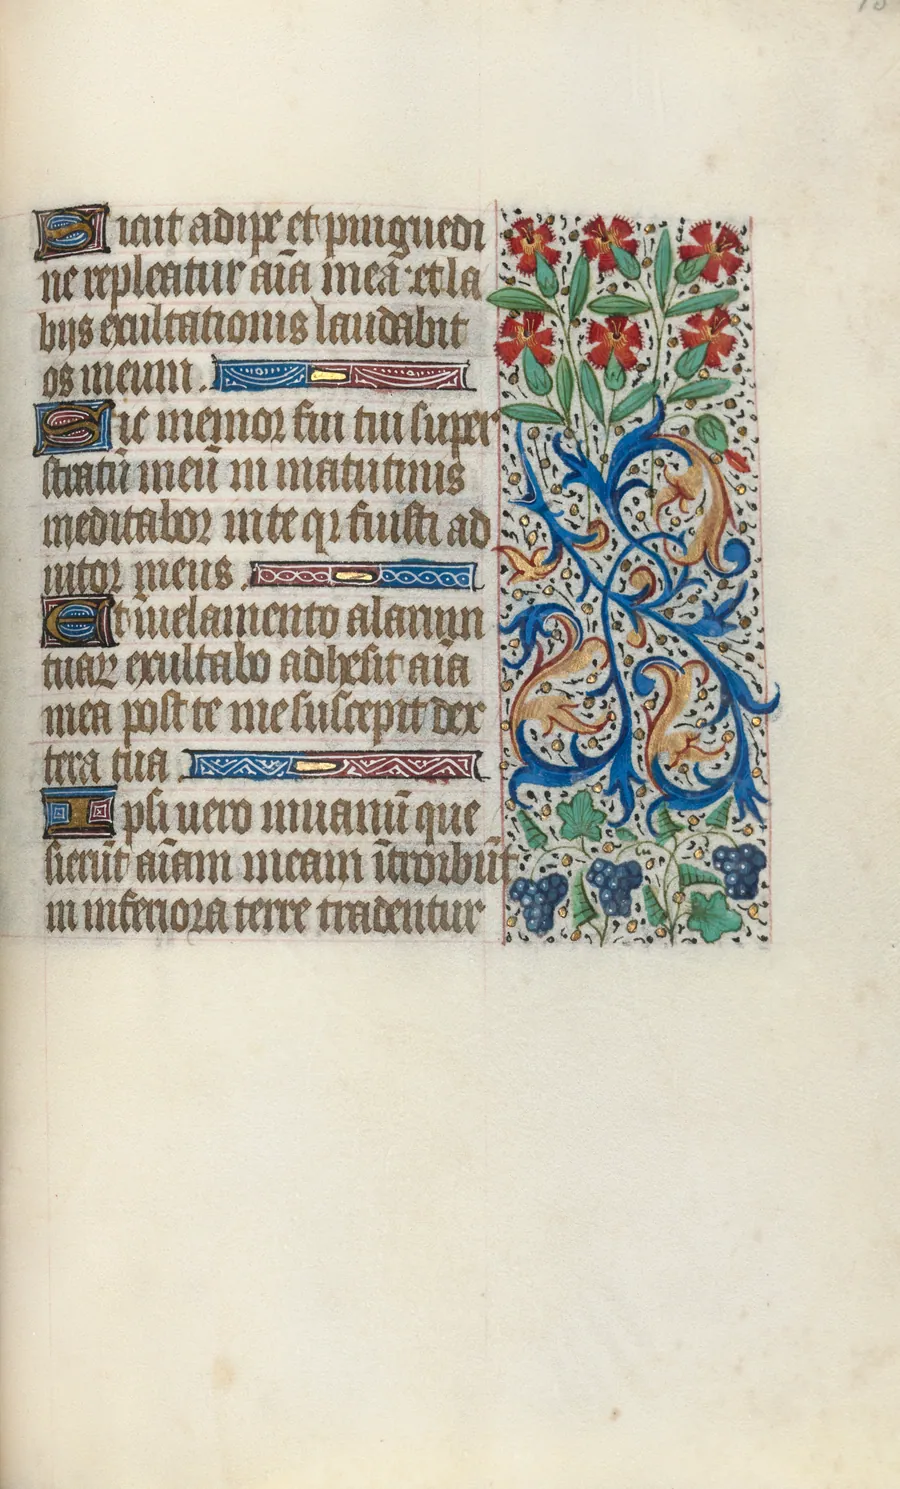 Sicut adipe et pinguedi
ne repleatur aīa mea: et la
bijs exultationis laudabit
os meum.
Sic memor fui tui super
stratū meū in matutinis
meditabor in te qꝛ fuisti ad
iutor meus.
Et in velamento alarum
tuaꝝ exultabo adhesit aīa
mea post te me suscepit dex
tera tua
Ipsi vero in vanū que
sierūt aīam meam ītroibūt
in inferiora terre tradentur